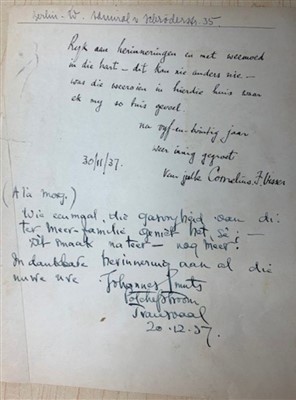 Berlin-W. Admiral v Schröderstr. 35
Ryk aan herinneringen en met weemoed
in die hart — dit kon nie anders nie. —
was die weersien in hierdie huis waar
ek my so tuis gevoel.
na vyf-en-twintig jaar
weer innig gegroet
30/11/37.
van julle Cornelius, J. Visser
(Alia maeg.)
Wie eenmaal die gasvryheid van di:
ter Meer-familie geniet het sê: —
dit smaak na teer — nog meer!
In dankbare herinnering aan al die
nuwe ure
Johannes Smuts
Potchefstroom
Transvaal
20.12.37.